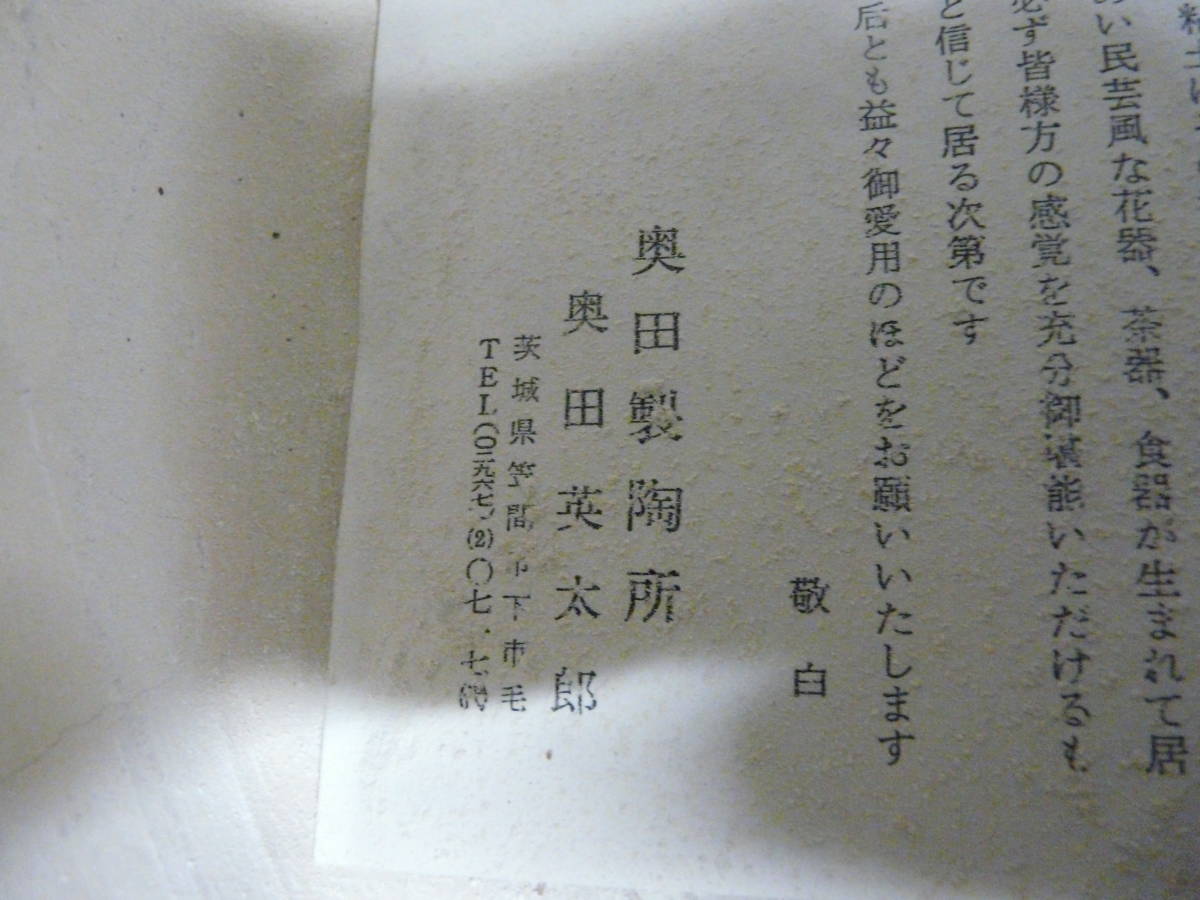 粘土は
い民芸風な花器、茶器、食器が生まれて居
必ず皆様方の感覚を充分御堪能いただけるも
と信じて居る次第です
后とも益々御愛用のほどをお願いいたします
敬白
奥田製陶所
奥田英太郎
茨城県笠間市下市毛
TEL(〇二九六七)(2)〇七